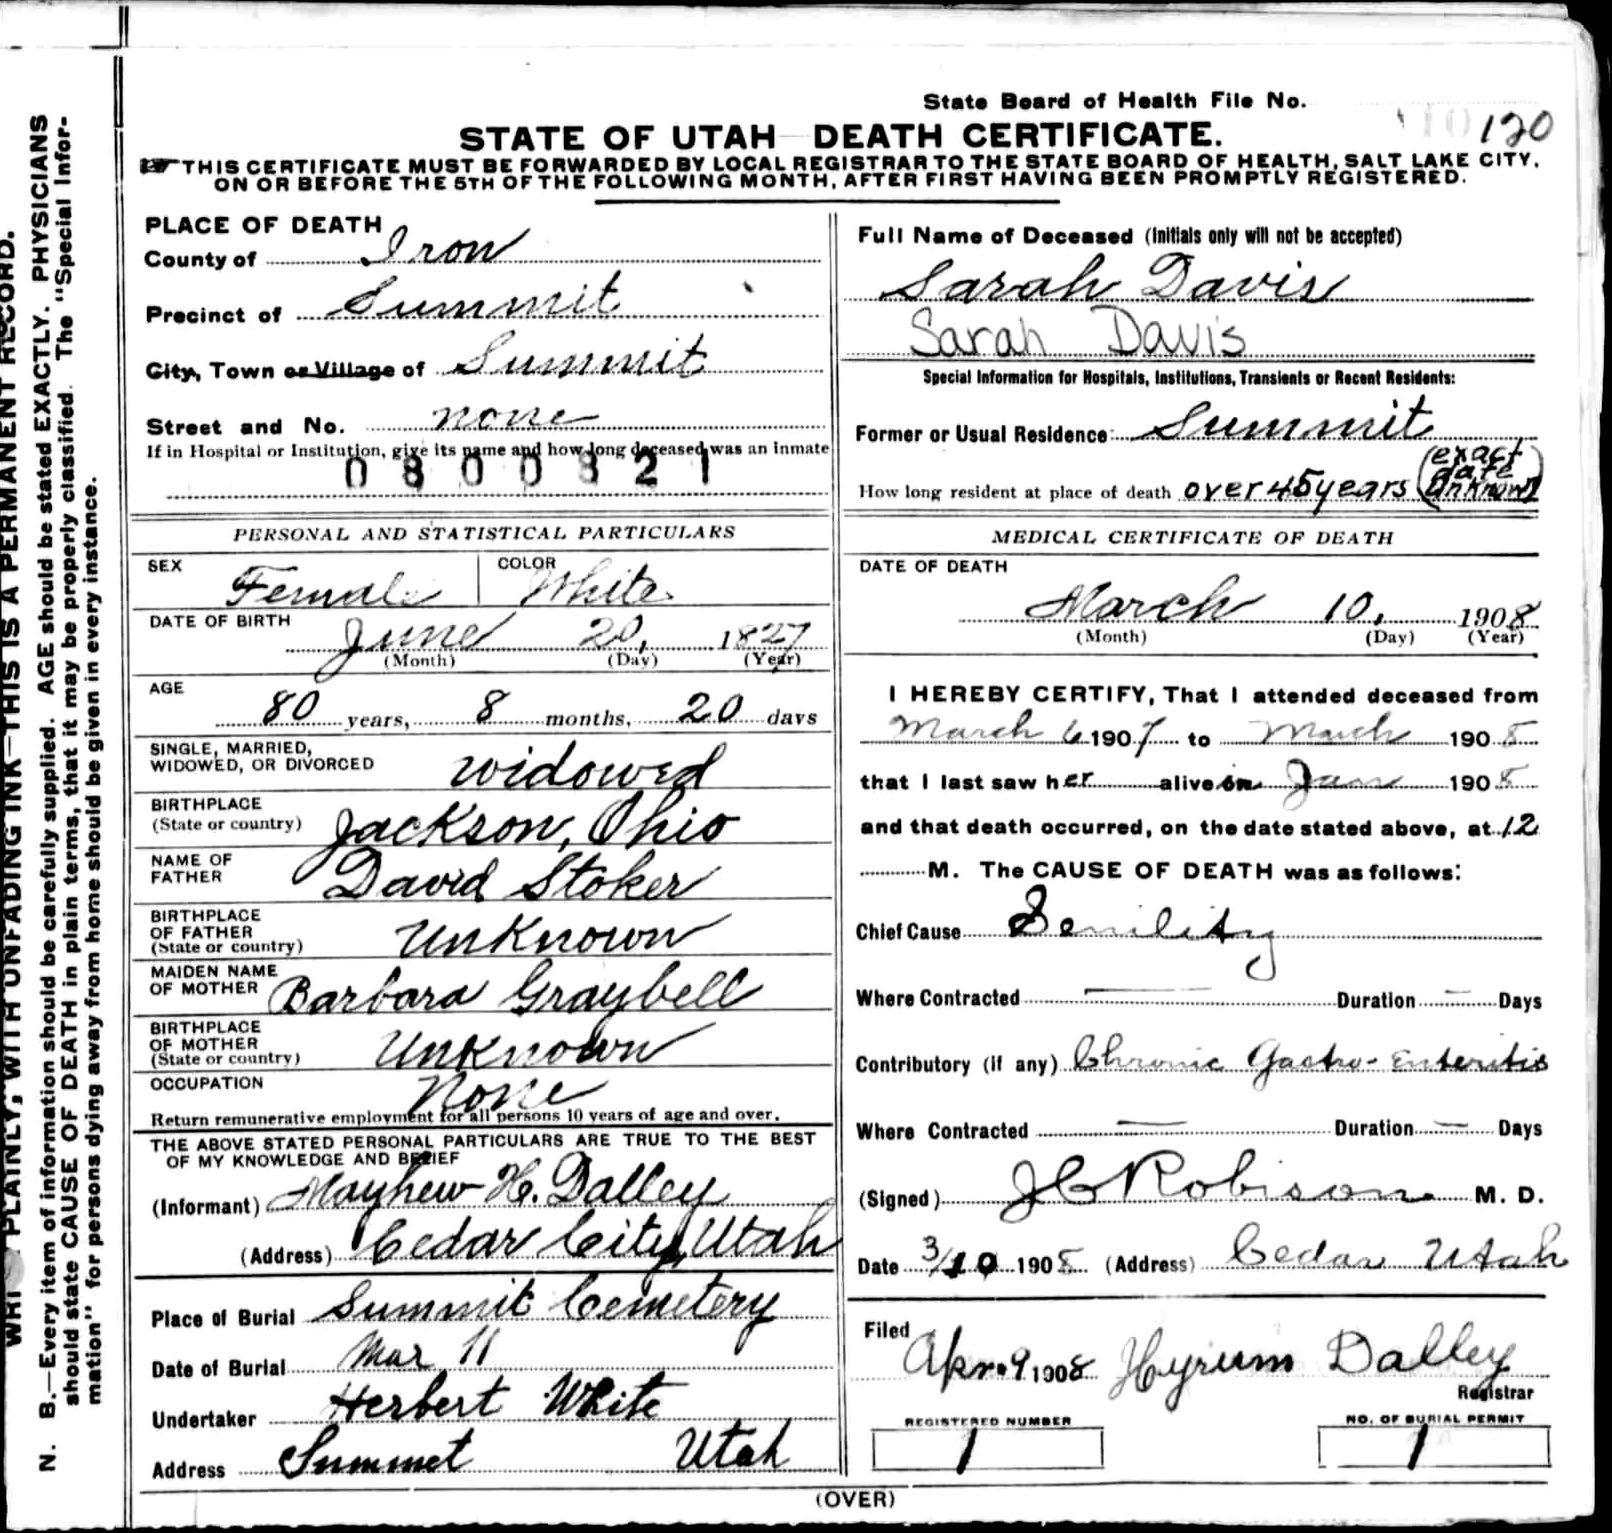 State Board of Health File No. 120
STATE OF UTAH DEATH CERTIFICATE.
THIS CERTIFICATE MUST BE FORWARDED BY LOCAL REGISTRAR TO THE STATE BOARD OF HEALTH, SALT LAKE CITY,
ON OR BEFORE THE 5TH OF THE FOLLOWING MONTH, AFTER FIRST HAVING BEEN PROMPTLY REGISTERED.
PLACE OF DEATH
County of Iron
Precinct of Summit
City, Town or Village of Summit
Street and No. none
If in Hospital or Institution, give its name and how long deceased was an inmate
0800321
Full Name of Deceased (Initials only will not be accepted)
Sarah Davis
Sarah Davis
Special Information for Hospitals, Institutions, Transients or Recent Residents:
Former or Usual Residence Summit
How long resident at place of death over 45 years (exact date unknown)
PERSONAL AND STATISTICAL PARTICULARS
SEX Female COLOR White
DATE OF BIRTH
June 20, 1827
(Month) (Day) (Year)
AGE
80 years, 8 months, 20 days
SINGLE, MARRIED,
WIDOWED, OR DIVORCED widowed
BIRTHPLACE
(State or country) Jackson, Ohio
NAME OF
FATHER David Stoker
BIRTHPLACE
OF FATHER
(State or country) Unknown
MAIDEN NAME
OF MOTHER Barbara Graybell
BIRTHPLACE
OF MOTHER
(State or country) Unknown
OCCUPATION None
Return remunerative employment for all persons 10 years of age and over.
THE ABOVE STATED PERSONAL PARTICULARS ARE TRUE TO THE BEST
OF MY KNOWLEDGE AND BELIEF
(Informant) Mayhew H. Dalley
(Address) Cedar City, Utah
Place of Burial Summit Cemetery
Date of Burial Mar 11
Undertaker Herbert White
Address Summit Utah
MEDICAL CERTIFICATE OF DEATH
DATE OF DEATH
March 10, 1908
(Month) (Day) (Year)
I HEREBY CERTIFY, That I attended deceased from
March 6 1907 to March 1908
that I last saw her alive in Jan 1908
and that death occurred, on the date stated above, at 12
M. The CAUSE OF DEATH was as follows:
Chief Cause Senility
Where Contracted — Duration — Days
Contributory (if any) Chronic Gastro-Enteritis
Where Contracted — Duration — Days
(Signed) J C Robison M. D.
Date 3/10 1908 (Address) Cedar Utah
Filed Apr. 9 1908 Hyrum Dalley
Registrar
REGISTERED NUMBER
1
NO. OF BURIAL PERMIT
1
(OVER)
PLAINLY, WITH UNFADING INK—THIS IS A PERMANENT RECORD.
N. B.—Every item of information should be carefully supplied. AGE should be stated EXACTLY. PHYSICIANS
should state CAUSE OF DEATH in plain terms, that it may be properly classified. The "Special Infor-
mation" for persons dying away from home should be given in every instance.